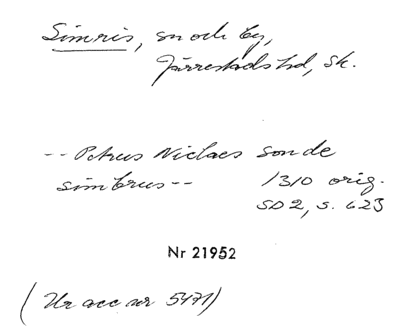 Simris, sn och by,
Järrestads hd, Sk.
-- Petrus Niclaes son de
simbrus --
1310 orig.
SD 2, s. 623
Nr 21952
(Ur acc nr 5471)